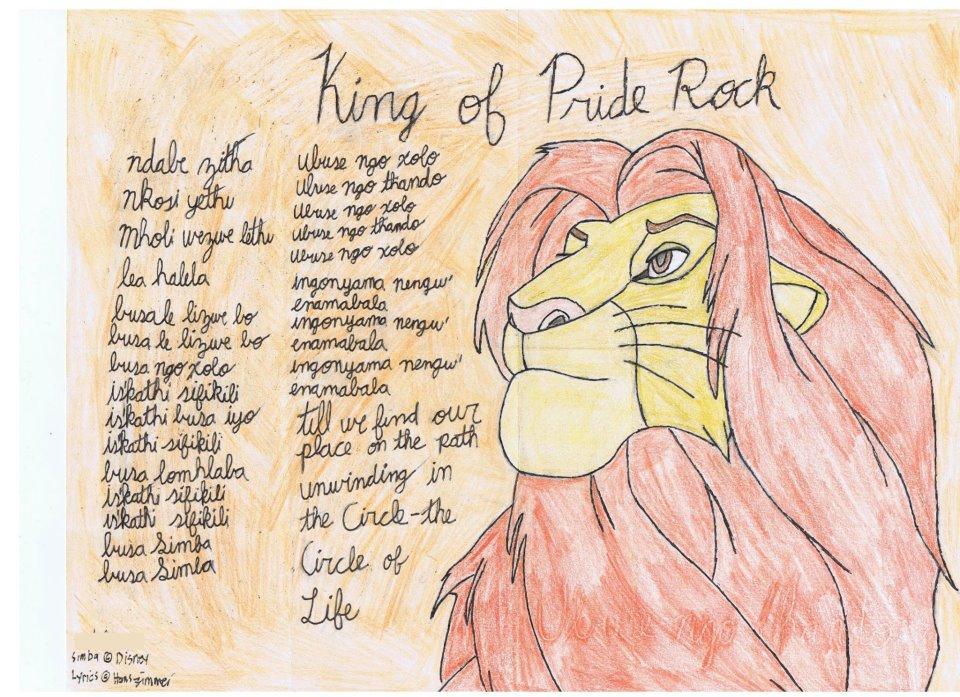 King of Pride Rock
ndabe zitha
nkosi yethu
Mholi wezwe lethu
lea halela
busa le lizwe bo
busa le lizwe bo
busa ngo xolo
iskathi sifikili
iskathi busa iyo
iskathi sifikili
busa lomhlaba
iskathi sifikili
iskathi sifikili
busa Simba
busa Simba
Ubuse ngo xolo
Ubuse ngo thando
Ubuse ngo xolo
Ubuse ngo thando
Ubuse ngo xolo
ingonyama nengw'
enamabala
ingonyama nengw'
enamabala
ingonyama nengw'
enamabala
till we find our
place on the path
unwinding in
the Circle-the
Circle of
Life
Simba © Disney
Lyrics © Hans Zimmer